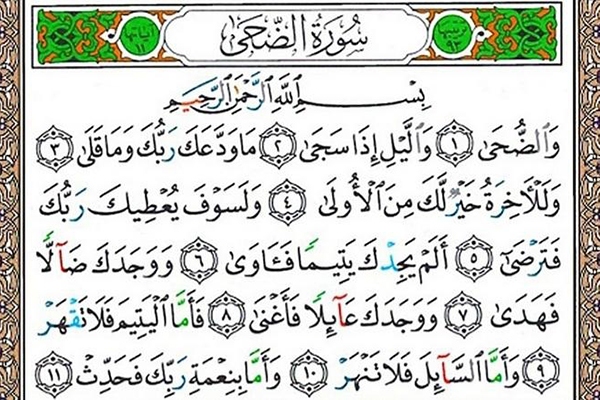 ترتيبها ٩٣ سُورَةُ الضُّحَىٰ آياتها ١١
بِسْمِ ٱللَّهِ ٱلرَّحْمَٰنِ ٱلرَّحِيمِ
وَٱلضُّحَىٰ ١ وَٱلَّيْلِ إِذَا سَجَىٰ ٢ مَا وَدَّعَكَ رَبُّكَ وَمَا قَلَىٰ ٣
وَلَلْءَاخِرَةُ خَيْرٌ لَّكَ مِنَ ٱلْأُولَىٰ ٤ وَلَسَوْفَ يُعْطِيكَ رَبُّكَ
فَتَرْضَىٰٓ ٥ أَلَمْ يَجِدْكَ يَتِيمًا فَـَٔاوَىٰ ٦ وَوَجَدَكَ ضَآلًّا
فَهَدَىٰ ٧ وَوَجَدَكَ عَآئِلًا فَأَغْنَىٰ ٨ فَأَمَّا ٱلْيَتِيمَ فَلَا تَقْهَرْ
٩ وَأَمَّا ٱلسَّآئِلَ فَلَا تَنْهَرْ ١٠ وَأَمَّا بِنِعْمَةِ رَبِّكَ فَحَدِّثْ ١١